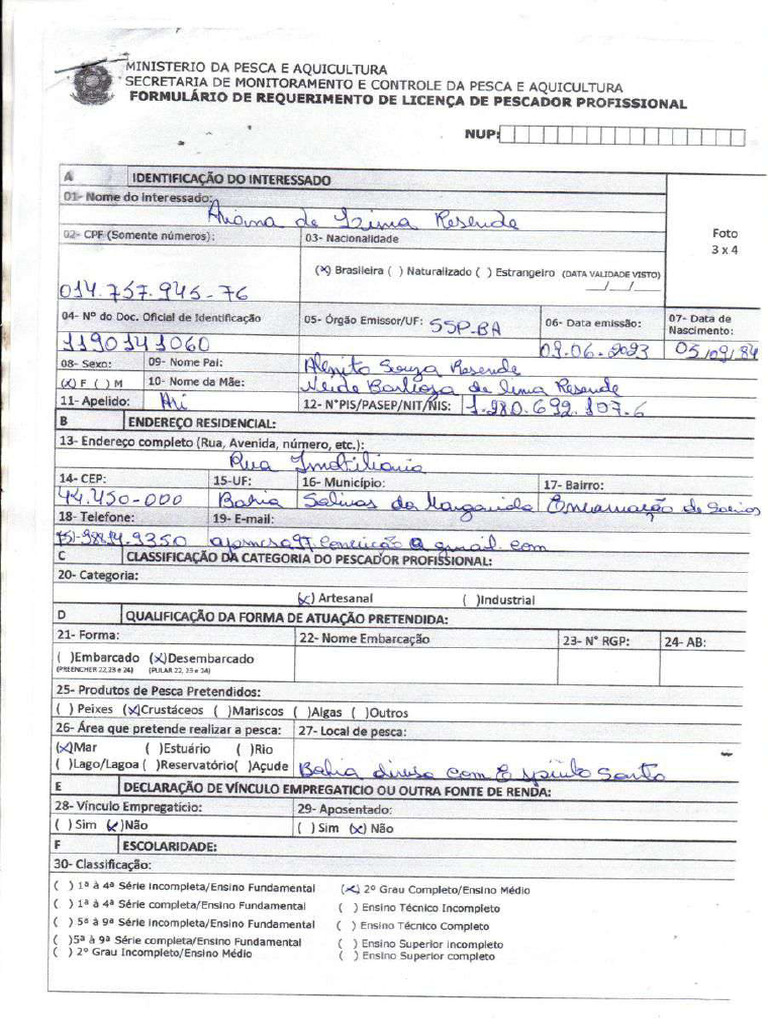 MINISTERIO DA PESCA E AQUICULTURA
SECRETARIA DE MONITORAMENTO E CONTROLE DA PESCA E AQUICULTURA
FORMULÁRIO DE REQUERIMENTO DE LICENÇA DE PESCADOR PROFISSIONAL
NUP:
A IDENTIFICAÇÃO DO INTERESSADO
01- Nome do interessado:
de Lima Resende
Foto
3 x 4
02- CPF (Somente números): 03- Nacionalidade
(x) Brasileira ( ) Naturalizado ( ) Estrangeiro (DATA VALIDADE VISTO)
__/__/__
014.757.945-76
04- Nº do Doc. Oficial de Identificação 05- Órgão Emissor/UF: SSP-BA 06- Data emissão: 07- Data de Nascimento:
1190141060 09.06.2023 05/09/84
08- Sexo: 09- Nome Pai: Souza Resende
(x) F ( ) M 10- Nome da Mãe: Neide Barbosa de Lima Resende
11- Apelido: Ari 12- N°PIS/PASEP/NIT/NIS: 1.280.692.107.6
B ENDEREÇO RESIDENCIAL:
13- Endereço completo (Rua, Avenida, número, etc.):
Rua Imobiliaria
14- CEP: 15-UF: 16- Município: 17- Bairro:
44.450-000 Bahia Salinas da Margarida Encarnação de Salinas
18- Telefone: 19- E-mail:
(75)-98814.9350 @gmail.com
C CLASSIFICAÇÃO DA CATEGORIA DO PESCADOR PROFISSIONAL:
20- Categoria:
(x) Artesanal ( )Industrial
D QUALIFICAÇÃO DA FORMA DE ATUAÇÃO PRETENDIDA:
21- Forma: 22- Nome Embarcação 23- N° RGP: 24- AB:
( )Embarcado (x)Desembarcado
(PREENCHER 22,23 e 24) (PULAR 22, 23 e 24)
25- Produtos de Pesca Pretendidos:
( ) Peixes (x)Crustáceos ( )Mariscos ( )Algas ( )Outros
26- Área que pretende realizar a pesca: 27- Local de pesca:
(x)Mar ( )Estuário ( )Rio
( )Lago/Lagoa ( )Reservatório( )Açude Bahia divisa com Espirito Santo
E DECLARAÇÃO DE VÍNCULO EMPREGATICIO OU OUTRA FONTE DE RENDA:
28- Vínculo Empregatício: 29- Aposentado:
( ) Sim (x)Não ( ) Sim (x) Não
F ESCOLARIDADE:
30- Classificação:
( ) 1ª à 4ª Série Incompleta/Ensino Fundamental (x) 2º Grau Completo/Ensino Médio
( ) 1ª à 4ª Série completa/Ensino Fundamental ( ) Ensino Técnico Incompleto
( ) 5ª à 9ª Série Incompleta/Ensino Fundamental ( ) Ensino Técnico Completo
( )5ª à 9ª Série completa/Ensino Fundamental ( ) Ensino Superior incompleto
( ) 2º Grau Incompleto/Ensino Médio ( ) Ensino Superior completo